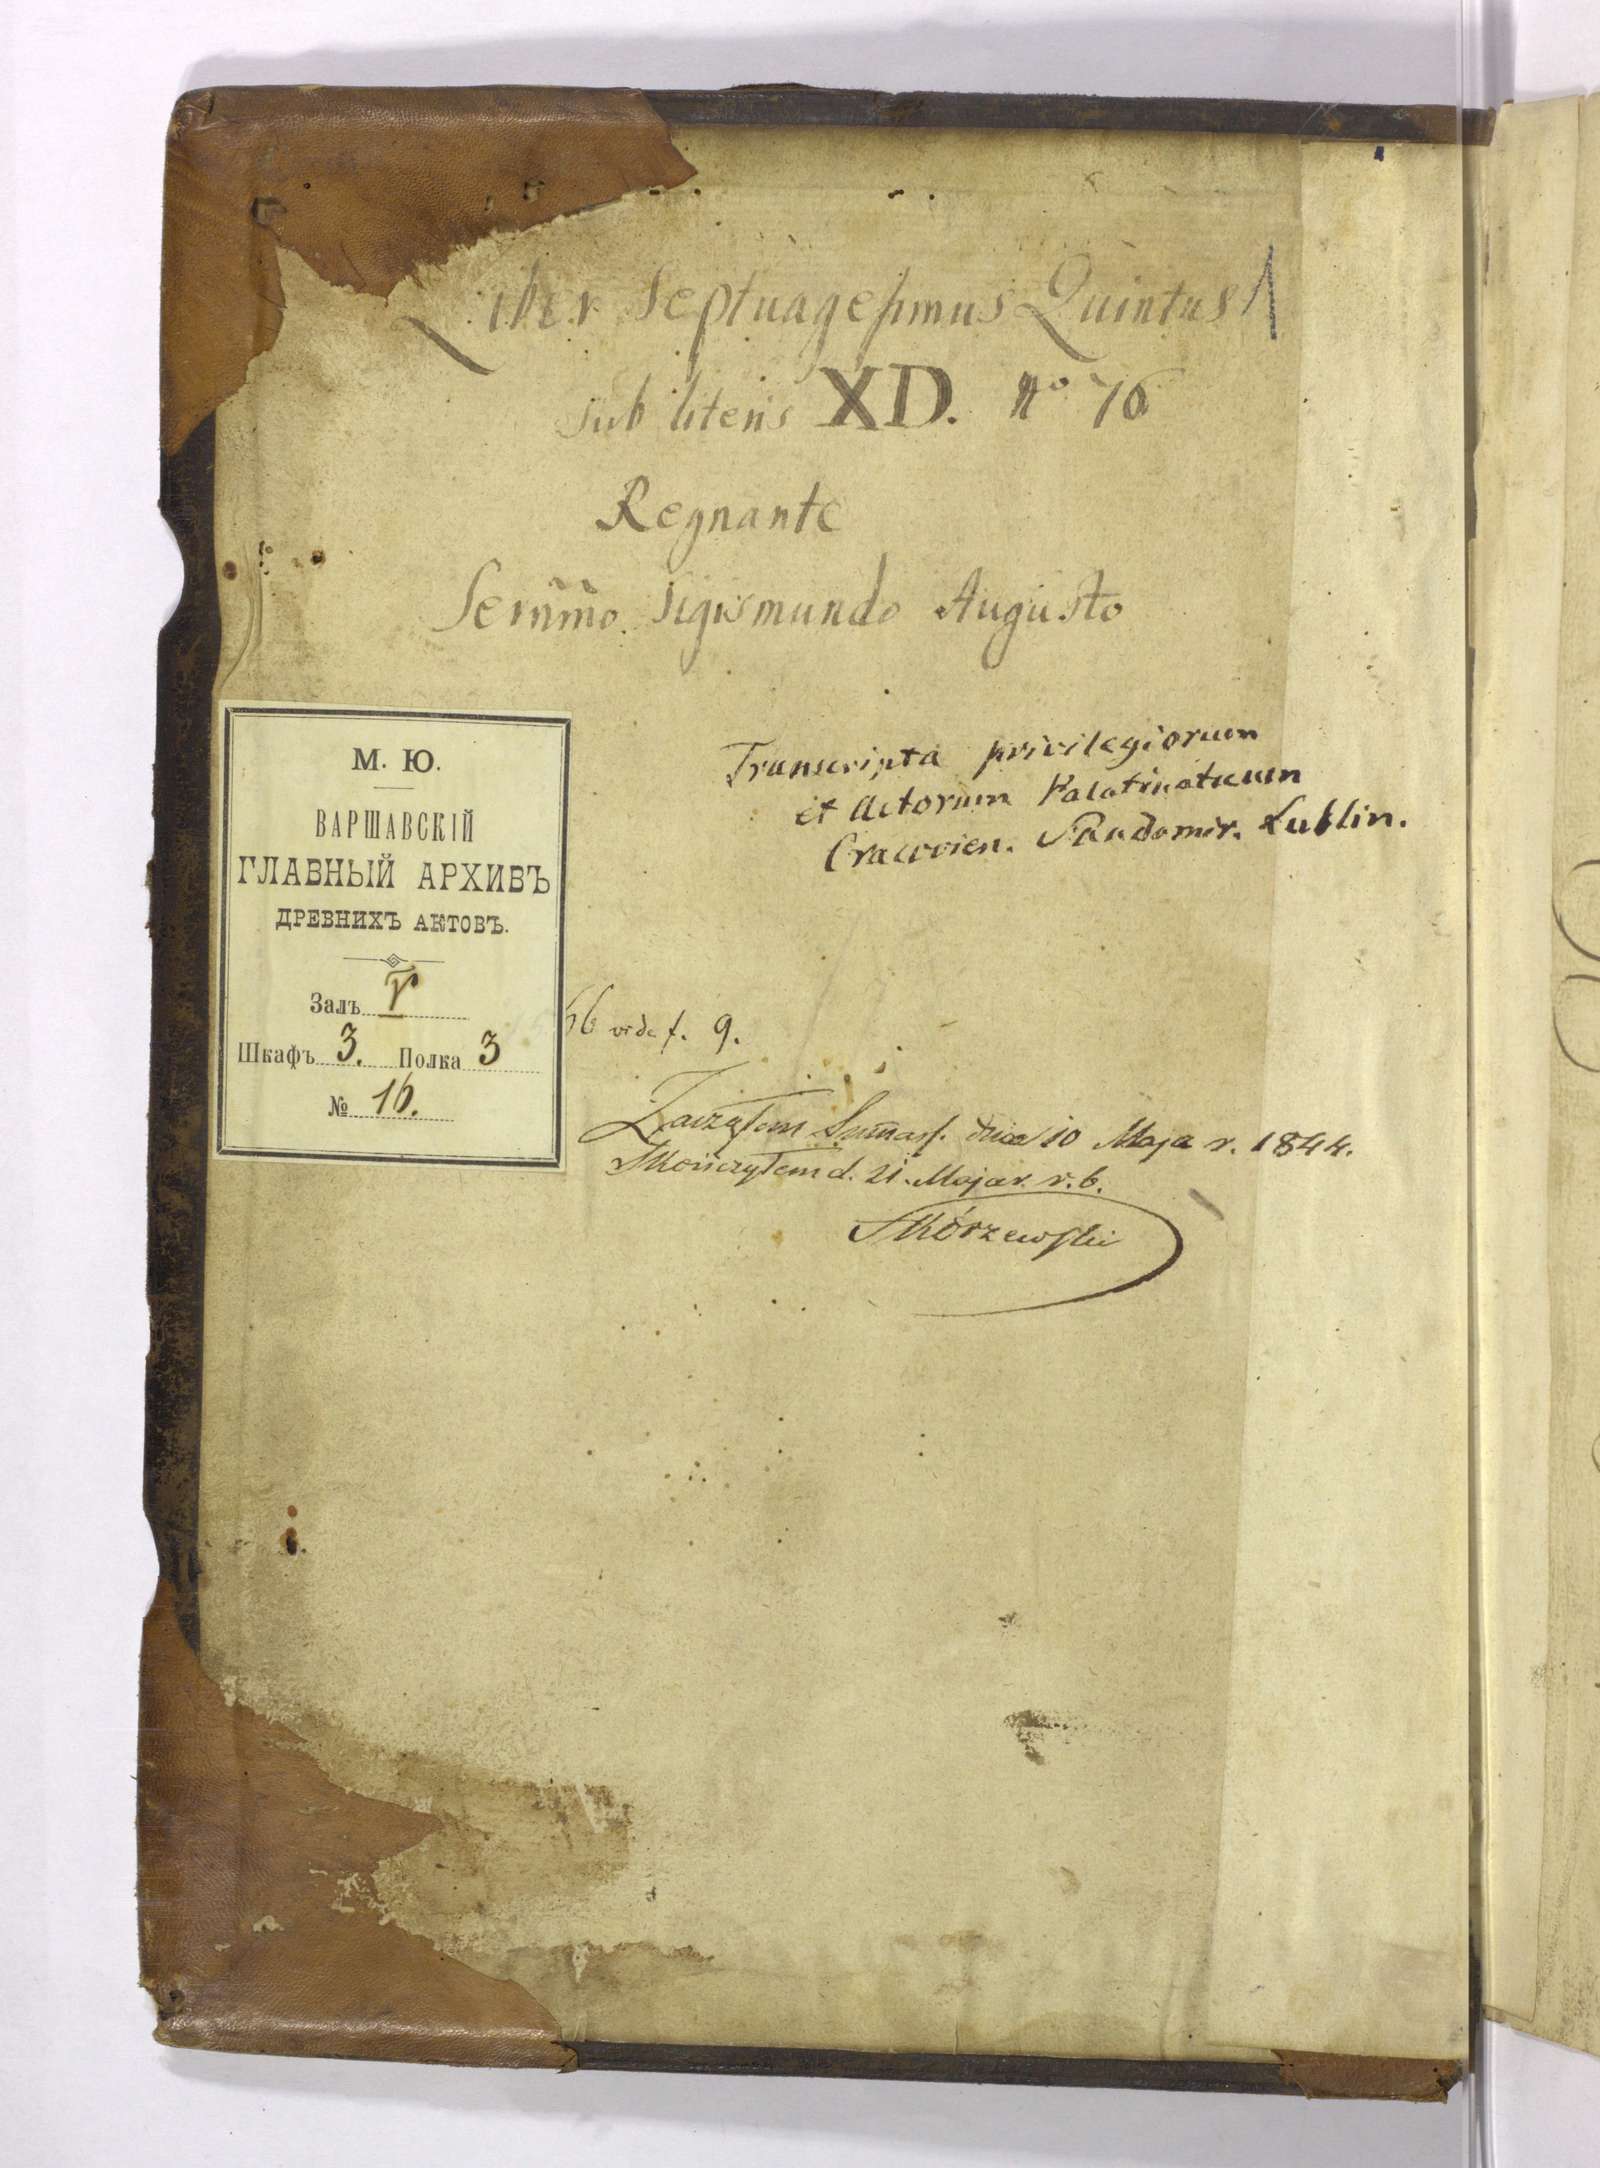 Liber Septuagesimus Quintus
sub literis XD. No 76
Regnante
Serm̃mo. Sigismundo Augusto
Transcripta privilegiorum
et Actorum Palatinatuum
Cracovien. Sandomir. Lublin.
М. Ю.
ВАРШАВСКІЙ
ГЛАВНЫЙ АРХИВЪ
ДРЕВНИХЪ АКТОВЪ.
Залъ V
Шкафъ 3. Полка 3
№ 16.
66 vide f. 9.
Zacząłem dnia 10 Maja r. 1844.
Skończyłem d. 21. Maja r. b.
Skórzewski